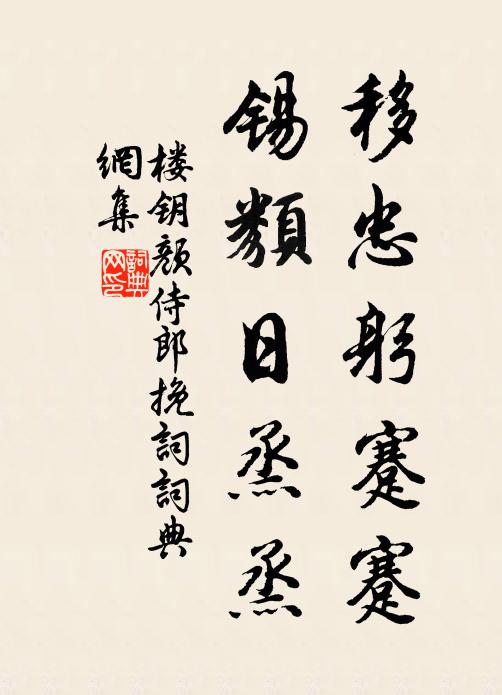 移忠躬蹇蹇
錫類日烝烝
楼钥颜侍郎挽詞詞典
網集
詞典
网印